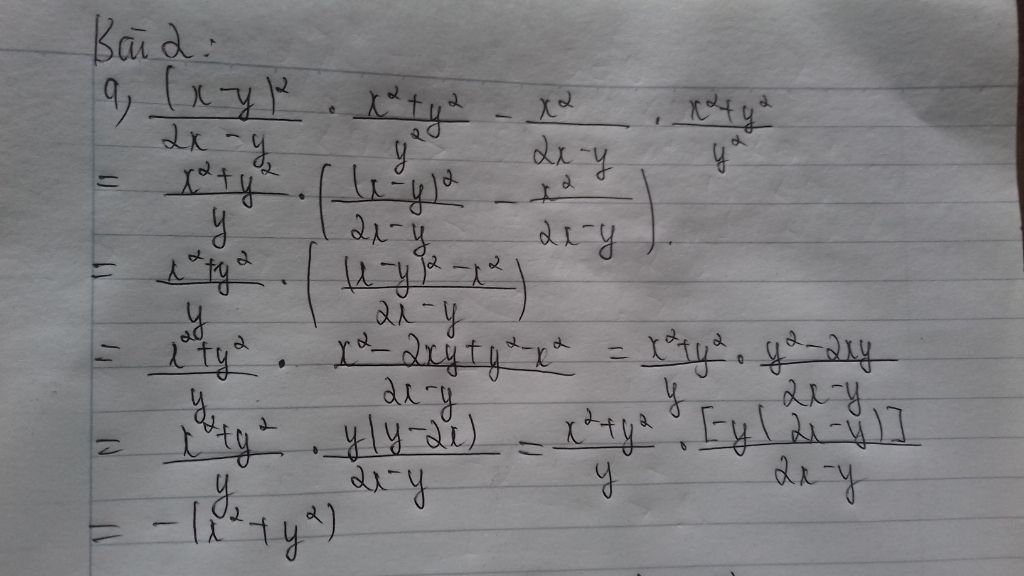 Bài 2:
a, (x-y)²/(2x-y) . (x²+y²)/y² - x²/(2x-y) . (x²+y²)/y²
= (x²+y²)/y . ((x-y)²/(2x-y) - x²/(2x-y)).
= (x²+y²)/y . (((x-y)²-x²)/(2x-y))
= (x²+y²)/y . (x²-2xy+y²-x²)/(2x-y) = (x²+y²)/y . (y²-2xy)/(2x-y)
= (x²+y²)/y . y(y-2x)/(2x-y) = (x²+y²)/y . [-y(2x-y)]/(2x-y)
= -(x²+y²)